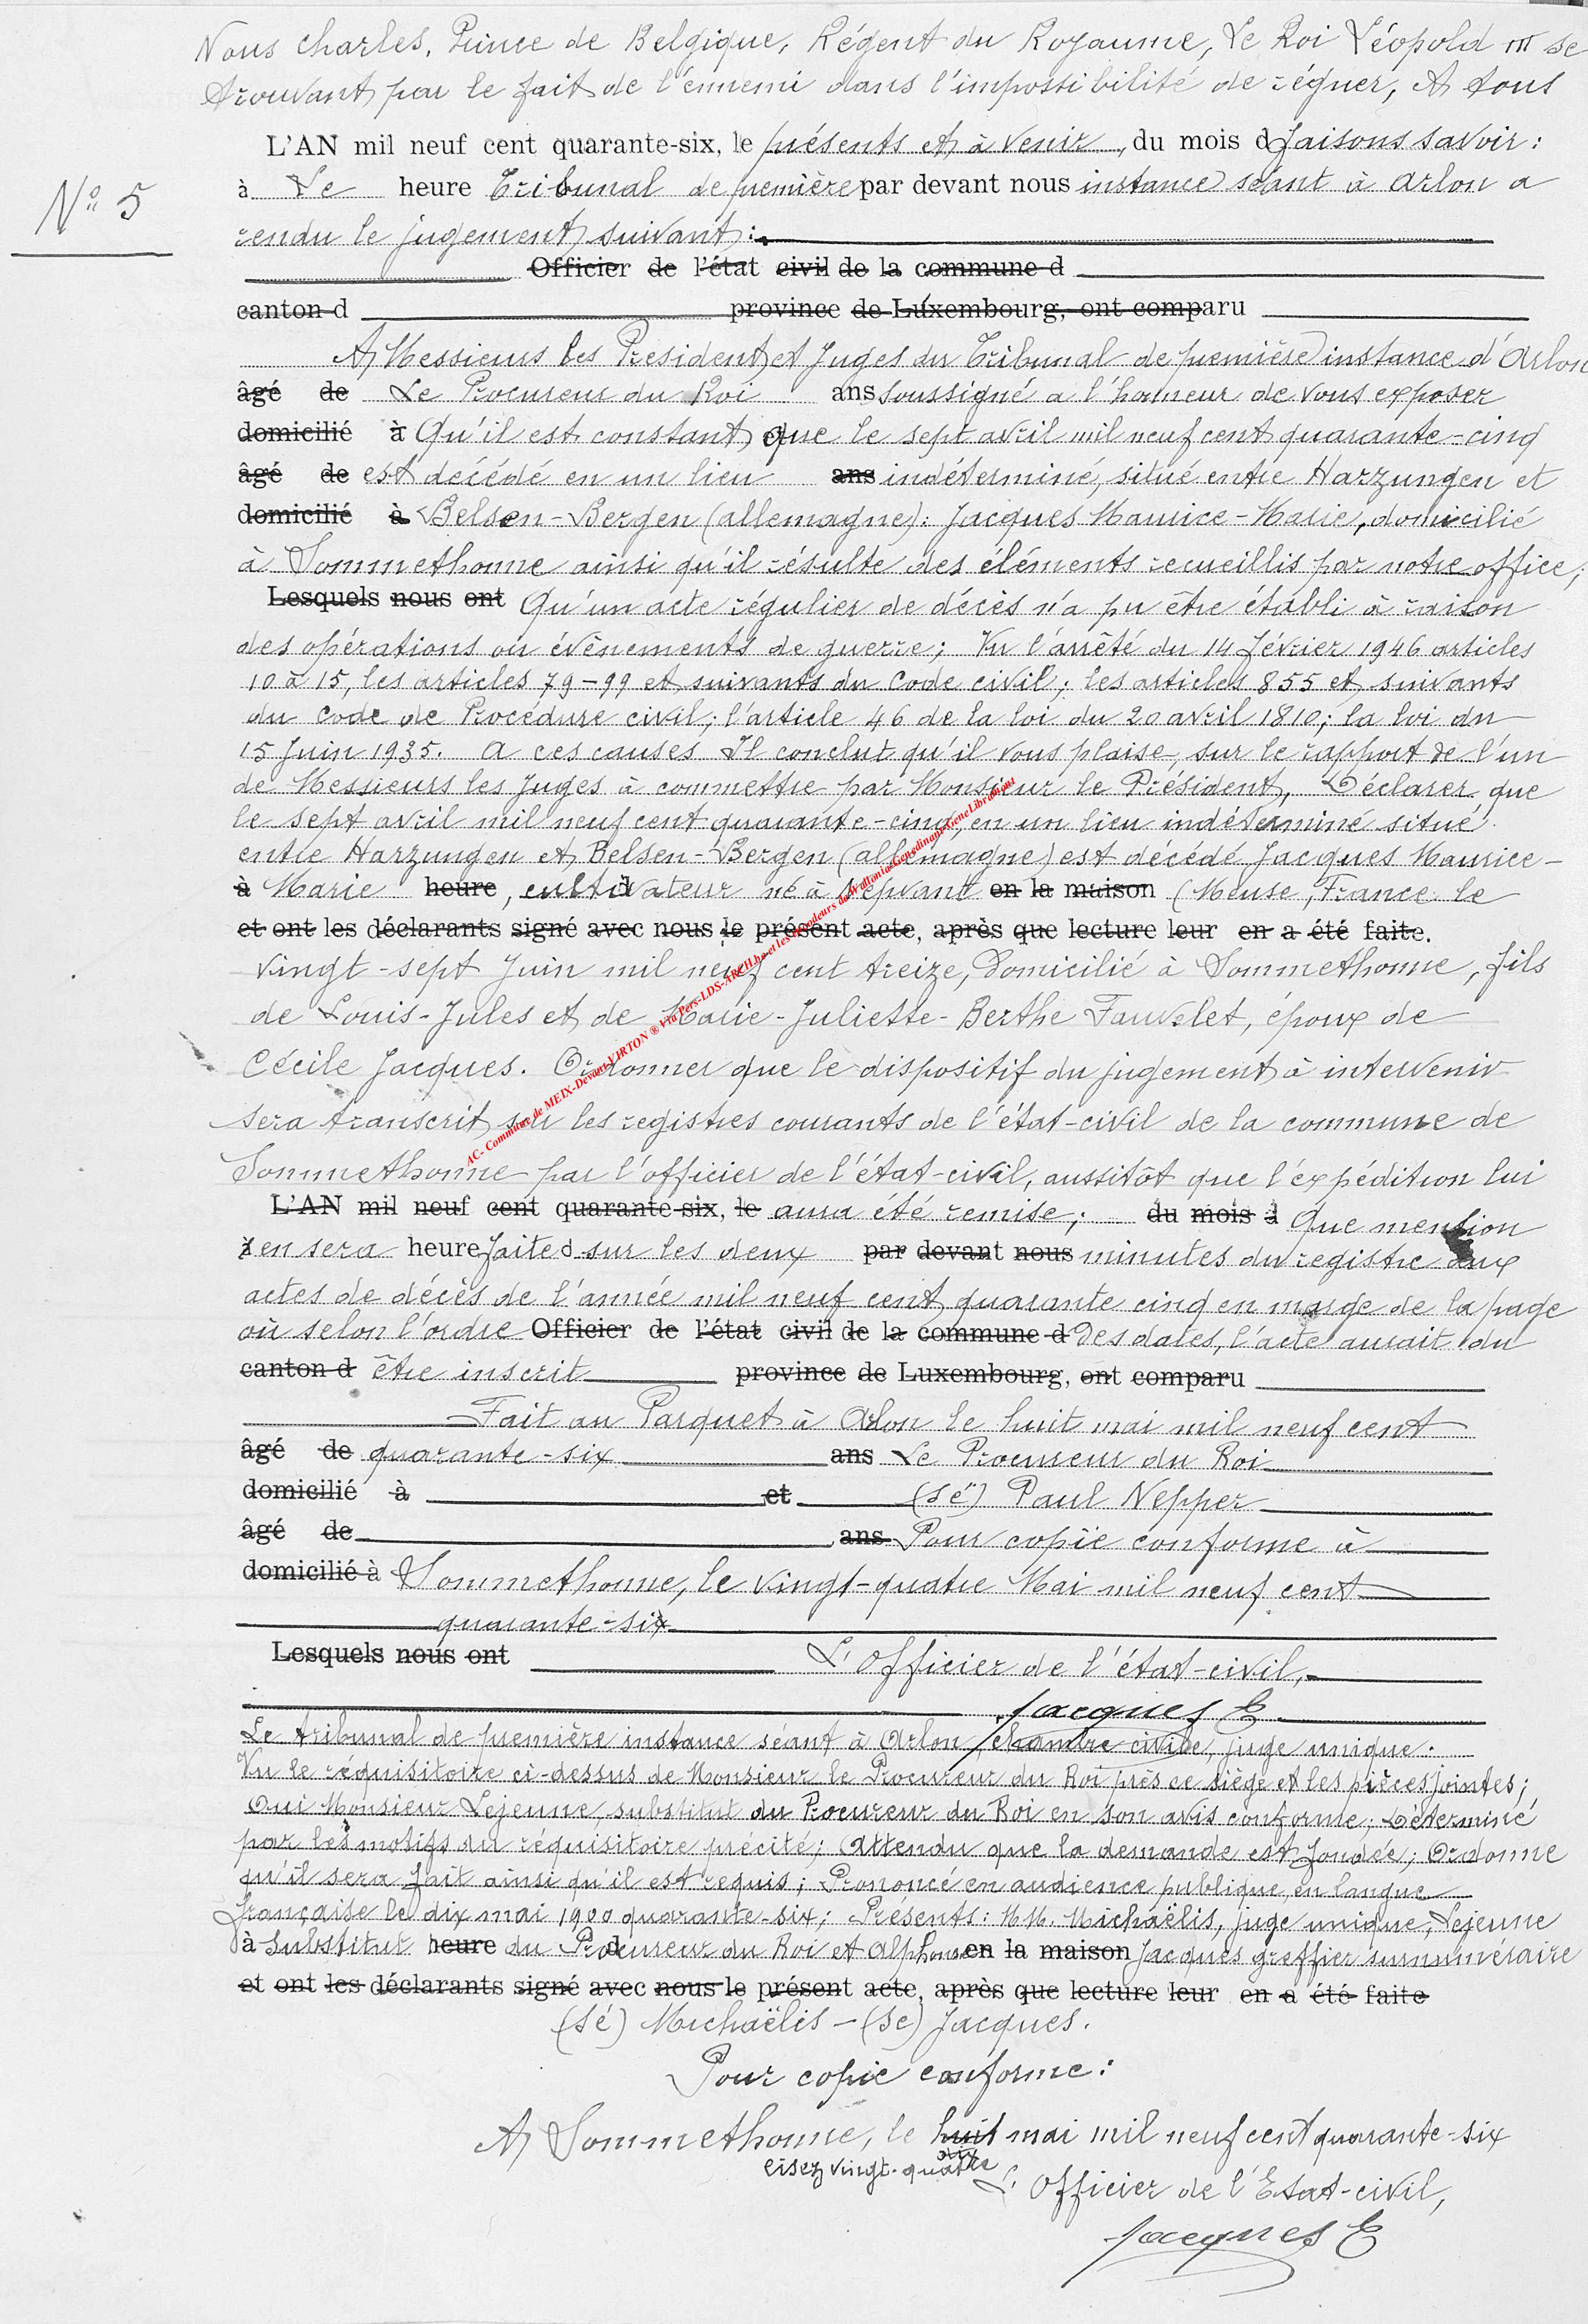 Nous Charles, Prince de Belgique, Régent du Royaume, Le Roi Léopold III se
trouvant par le fait de l'ennemi dans l'impossibilité de régner, A tous
L'AN mil neuf cent quarante-six, le présents et à venir, du mois d faisons savoir :
N° 5
à Le heure Tribunal de première par devant nous instance séant à Arlon a
rendu le jugement suivant :
Officier de l'état civil de la commune d
canton d province de Luxembourg, ont comparu
A Messieurs les President et Juges du Tribunal de première instance d'Arlon
âgé de Le Procureur du Roi ans soussigné a l'honneur de vous exposer
domicilié à Qu'il est constant que le sept avril mil neuf cent quarante-cinq
âgé de est décédé en un lieu ans indéterminé, situé entre Harzungen et
domicilié à Belsen-Bergen (allemagne) : Jacques Maurice-Marie, domicilié
à Sommethonne ainsi qu'il résulte des éléments recueillis par notre office;
Lesquels nous ont Qu'un acte régulier de décès n'a pu être établi à raison
des opérations ou évènements de guerre; Vu l'arrêté du 14 février 1946 articles
10 à 15, les articles 79-99 et suivants du Code civil; les articles 855 et suivants
du Code de Procédure civil; l'article 46 de la loi du 20 avril 1810; la loi du
15 Juin 1935. A ces causes Il conclut qu'il vous plaise, sur le rapport de l'un
de Messieurs les Juges à commettre par Monsieur le Président, Déclarer que
le sept avril mil neuf cent quarante-cinq, en un lieu indéterminé situé
entre Harzungen et Belsen-Bergen (allemagne) est décédé Jacques Maurice-
à Marie heure, cultivateur né à Nepvant en la maison (Meuse, France le
et ont les déclarants signé avec nous le présent acte, après que lecture leur en a été faite.
vingt-sept Juin mil neuf cent treize, Domicilié à Sommethonne, fils
de Louis-Jules et de Marie-Juliette-Berthe Fauvelet, époux de
Cécile Jacques. Ordonner que le dispositif du jugement à intervenir
sera transcrit sur les registres courants de l'état-civil de la commune de
AC- Commune de MEIX-Devant-VIRTON ® via Pers-LDS-ARCH.be et les encodeurs de Wallonia-Genedinant-GeneLibramont
Sommethonne par l'officier de l'état-civil, aussitôt que l'expédition lui
L'AN mil neuf cent quarante-six, le aura été remise; du mois d Que mention
à en sera heure faite d sur les deux par devant nous minutes du registre aux
actes de décès de l'année mil neuf cent quarante cinq en marge de la page
où selon l'ordre Officier de l'état civil de la commune d Des dates, l'acte aurait du
canton d être inscrit province de Luxembourg, ont comparu
Fait au Parquet à Arlon le huit mai mil neuf cent
âgé de quarante-six ans Le Procureur du Roi
domicilié à et (sé) Paul Nepper
âgé de ans Pour copie conforme à
domicilié à Sommethonne, le vingt-quatre Mai mil neuf cent
quarante-six
Lesquels nous ont L'officier de l'état-civil,
Jacques E
Le tribunal de première instance séant à Arlon, chambre civile, juge unique.
Vu le réquisitoire ci-dessus de Monsieur le Procureur du Roi près ce siège et les pièces jointes;
Oui Monsieur Lejeune, substitut du Procureur du Roi en son avis conforme; Déterminé
par les motifs du réquisitoire précité; Attendu que la demande est fondée; Ordonne
qu'il sera fait ainsi qu'il est requis; Prononcé en audience publique, en langue
française le dix mai 1900 quarante-six; Présents: MM. Michaëlis, juge unique, Lejeune
à Substitut heure du Procureur du Roi et Alphonse en la maison Jacques greffier surnuméraire
et ont les déclarants signé avec nous le présent acte, après que lecture leur en a été faite
(sé) Michaëlis - (sé) Jacques.
Pour copie conforme :
A Sommethonne, le huit mai mil neuf cent quarante-six
dix
lisez vingt-quatre
L'Officier de l'Etat-civil,
Jacques E